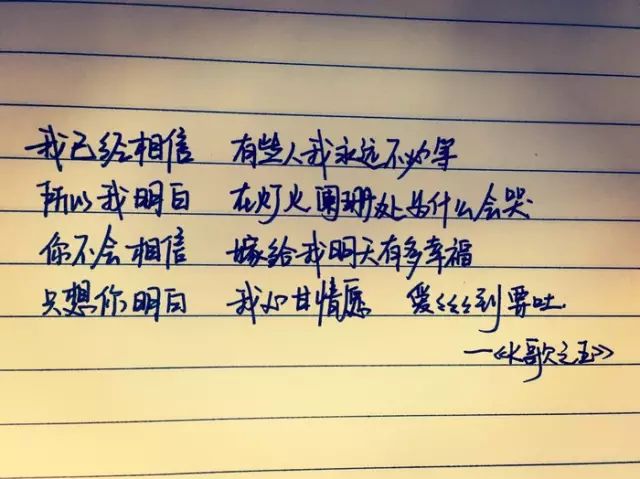 我已经相信 有些人我永远不必等
所以我明白 在灯火阑珊处为什么会哭
你不会相信 嫁给我明天有多幸福
只想你明白 我心甘情愿 爱爱爱到要吐
——《K歌之王》